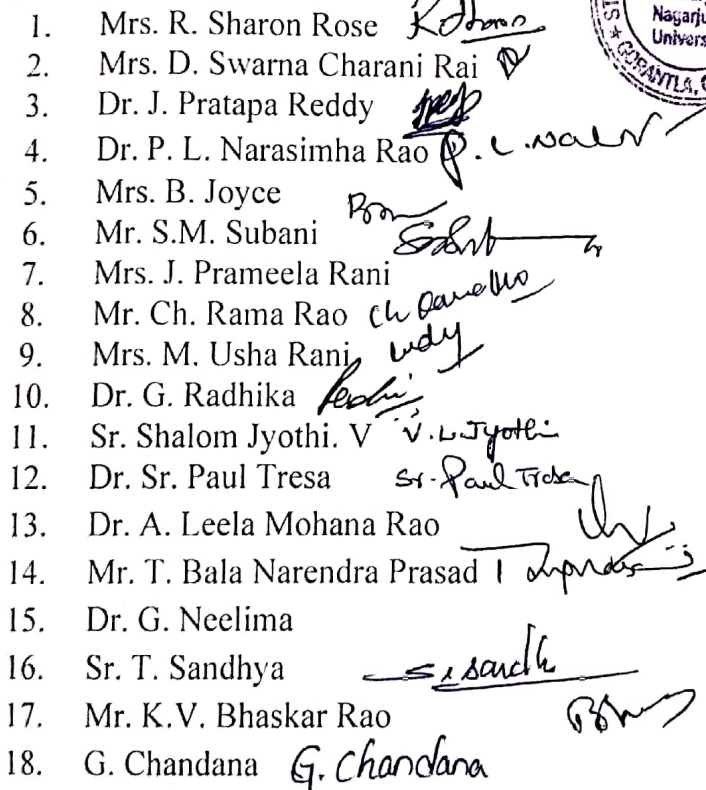 Nagarju
Univers
GORANTLA, G
1. Mrs. R. Sharon Rose
2. Mrs. D. Swarna Charani Rai
3. Dr. J. Pratapa Reddy
4. Dr. P. L. Narasimha Rao P. L. Na
5. Mrs. B. Joyce
6. Mr. S.M. Subani
7. Mrs. J. Prameela Rani
8. Mr. Ch. Rama Rao Ch Rama Rao
9. Mrs. M. Usha Rani
10. Dr. G. Radhika
11. Sr. Shalom Jyothi. V V. L. Jyothi
12. Dr. Sr. Paul Tresa Sr. Paul Tresa
13. Dr. A. Leela Mohana Rao
14. Mr. T. Bala Narendra Prasad
15. Dr. G. Neelima
16. Sr. T. Sandhya
17. Mr. K.V. Bhaskar Rao
18. G. Chandana G. Chandana